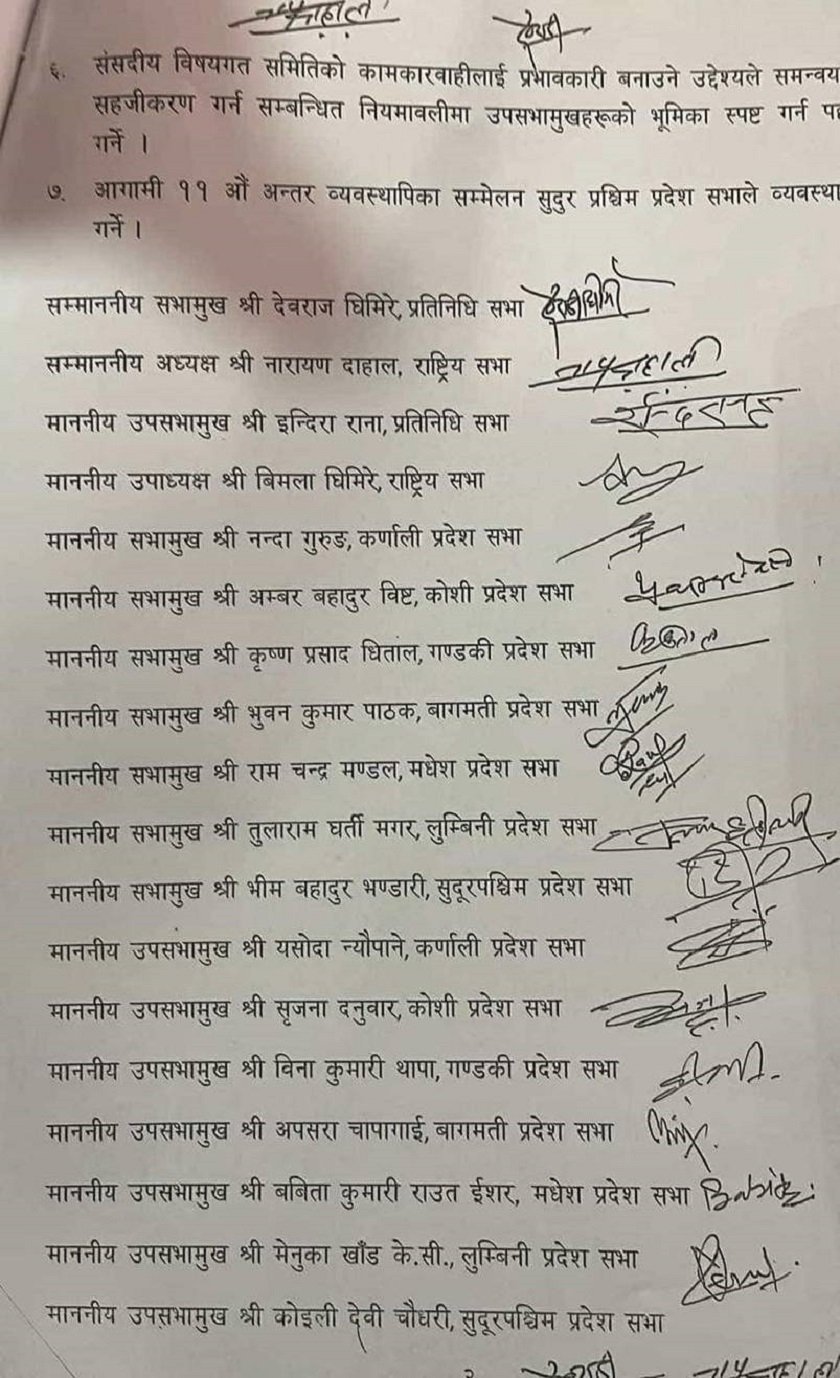 ६. संसदीय विषयगत समितिको कामकारवाहीलाई प्रभावकारी बनाउने उद्देश्यले समन्वय
सहजीकरण गर्न सम्बन्धित नियमावलीमा उपसभामुखहरूको भूमिका स्पष्ट गर्न
गर्ने ।
७. आगामी ११ औं अन्तर व्यवस्थापिका सम्मेलन सुदुर प्रश्चिम प्रदेश सभाले व्यवस्था
गर्ने ।
सम्माननीय सभामुख श्री देवराज घिमिरे, प्रतिनिधि सभा
सम्माननीय अध्यक्ष श्री नारायण दाहाल, राष्ट्रिय सभा
माननीय उपसभामुख श्री इन्दिरा राना, प्रतिनिधि सभा
माननीय उपाध्यक्ष श्री बिमला घिमिरे, राष्ट्रिय सभा
माननीय सभामुख श्री नन्दा गुरुङ, कर्णाली प्रदेश सभा
माननीय सभामुख श्री अम्बर बहादुर विष्ट, कोशी प्रदेश सभा
माननीय सभामुख श्री कृष्ण प्रसाद धिताल, गण्डकी प्रदेश सभा
माननीय सभामुख श्री भुवन कुमार पाठक, बागमती प्रदेश सभा
माननीय सभामुख श्री राम चन्द्र मण्डल, मधेश प्रदेश सभा
माननीय सभामुख श्री तुलाराम घर्ती मगर, लुम्बिनी प्रदेश सभा
माननीय सभामुख श्री भीम बहादुर भण्डारी, सुदूरपश्चिम प्रदेश सभा
माननीय उपसभामुख श्री यसोदा न्यौपाने, कर्णाली प्रदेश सभा
माननीय उपसभामुख श्री सृजना दनुवार, कोशी प्रदेश सभा
माननीय उपसभामुख श्री विना कुमारी थापा, गण्डकी प्रदेश सभा
माननीय उपसभामुख श्री अपसरा चापागाई, बागमती प्रदेश सभा
माननीय उपसभामुख श्री बबिता कुमारी राउत ईशर, मधेश प्रदेश सभा
माननीय उपसभामुख श्री मेनुका खाँड के.सी., लुम्बिनी प्रदेश सभा
माननीय उपसभामुख श्री कोइली देवी चौधरी, सुदूरपश्चिम प्रदेश सभा